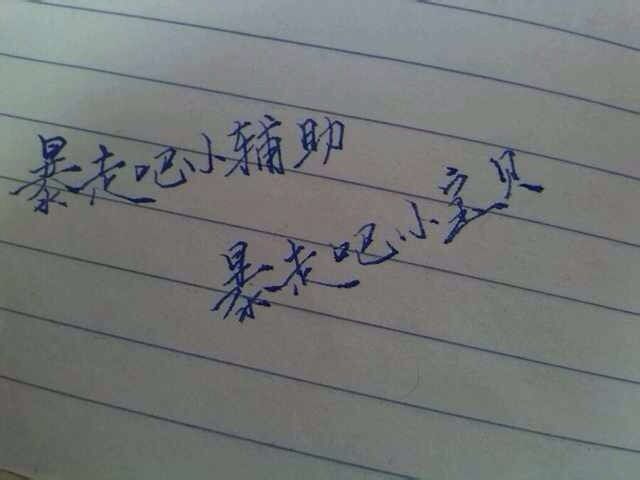 暴走吧小辅助
暴走吧小宝贝